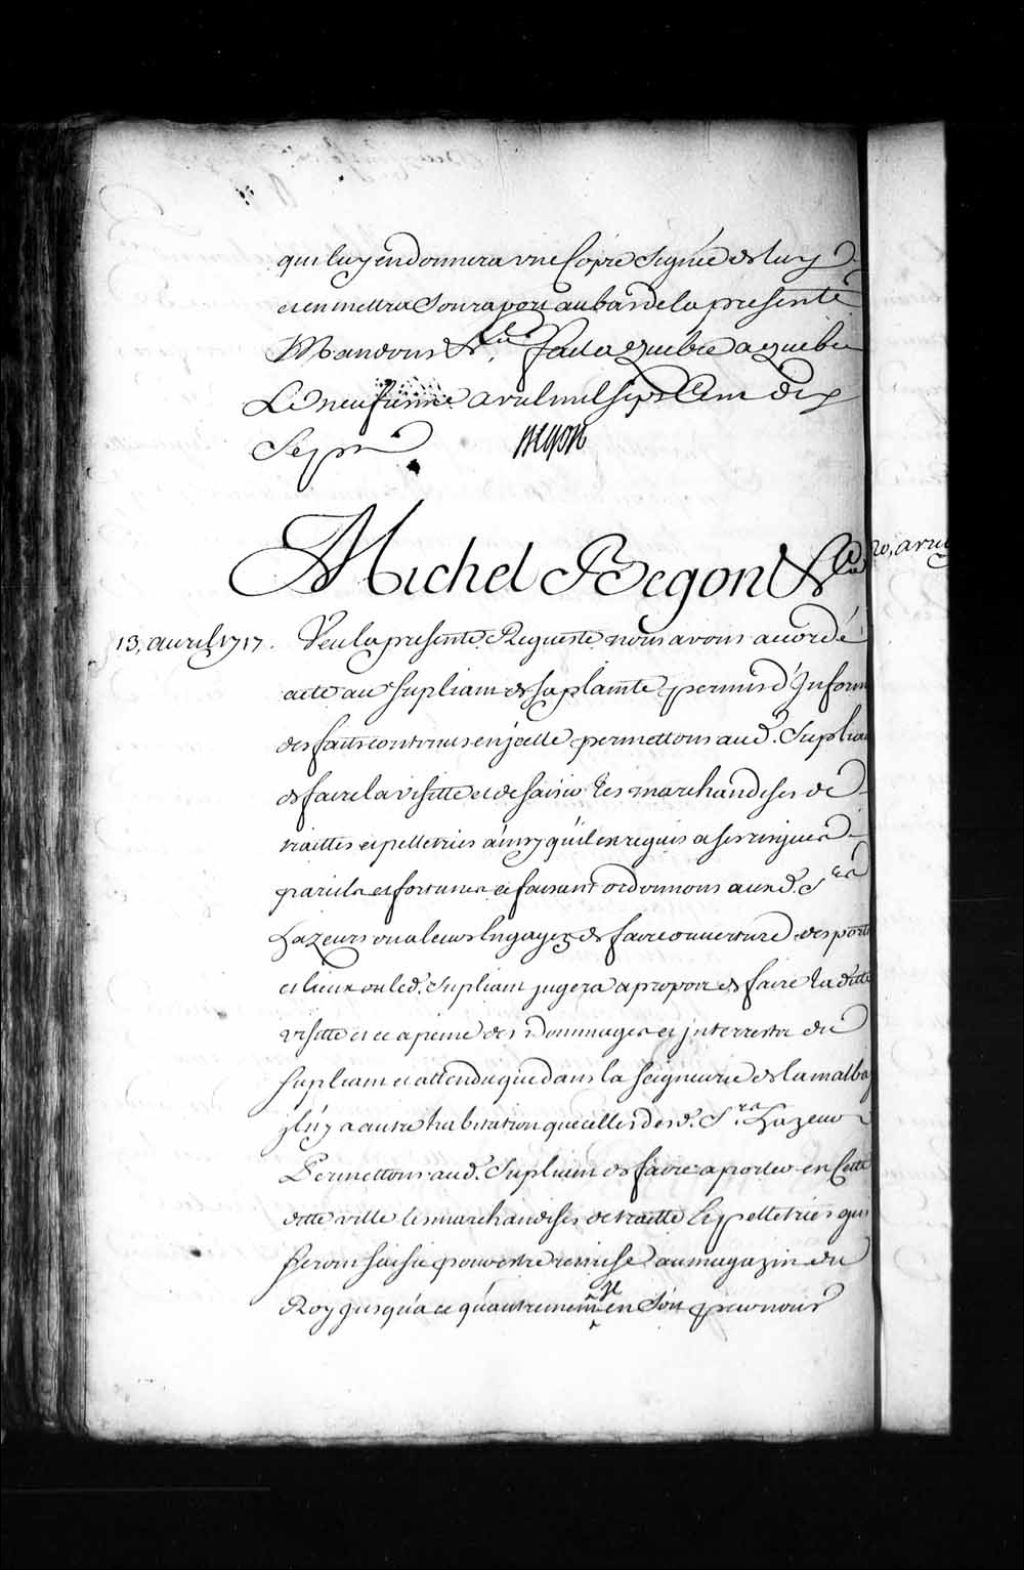 qui luy en donnera une Copie Signée de luy
et en mettra Son raport au bas de la presente
Mandons &ca. fait a quebec a quebec
Le neufieme avril mil sept Cens dix
Sept
Begon
Michel Begon &ca
20, avril
13, avril 1717. Veu la presente Requeste nous avons accordé
acte au Supliant de sa plainte permis d'Inform
des faits contenus en jcelle permettons aud. Suplian
de faire la visitte et de saisir les marchandises de
traittes et pelletries ainsy qu'il en requis a ses risques
perils et fortunes ce faisant ordonnons auxd. Srs
hazeurs ou a leurs Engagez de faire ouverture des portes
et lieux ou led. Supliant jugera a propos de faire la ditte
visitte et ce a peine des Dommages et jnterrests du
Supliant et attendu que dans la Seigneurie de la malbay
jl n'y a autre habitation que celles desd. Srs. hazeur
Permettons aud. Supliant de faire aporter en Cette
ditte ville les marchandises de traitte Et pelletries qui
Seront Saisie pour estre remise au magazin du
Roy jusqu'a ce qu'autrement en Soit par nous